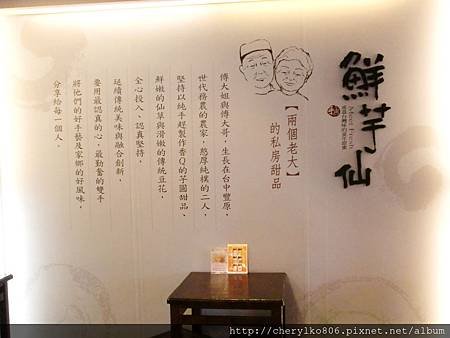 鮮芋仙
Meet Fresh
【兩個老大】
的私房甜品
傅大姐與傅大哥，生長在台中豐原，
世代務農的農家，憨厚純樸的二人，
堅持以純手工製作香Q的芋圓甜品、
鮮嫩的仙草與滑嫩的傳統豆花，
全心投入、認真堅持，
延續傳統美味與融合創新，
要用最認真的心，最勤奮的雙手
將他們的好手藝及家鄉的好風味，
分享給每一個人。
http://cherylko806.pixnet.net/album